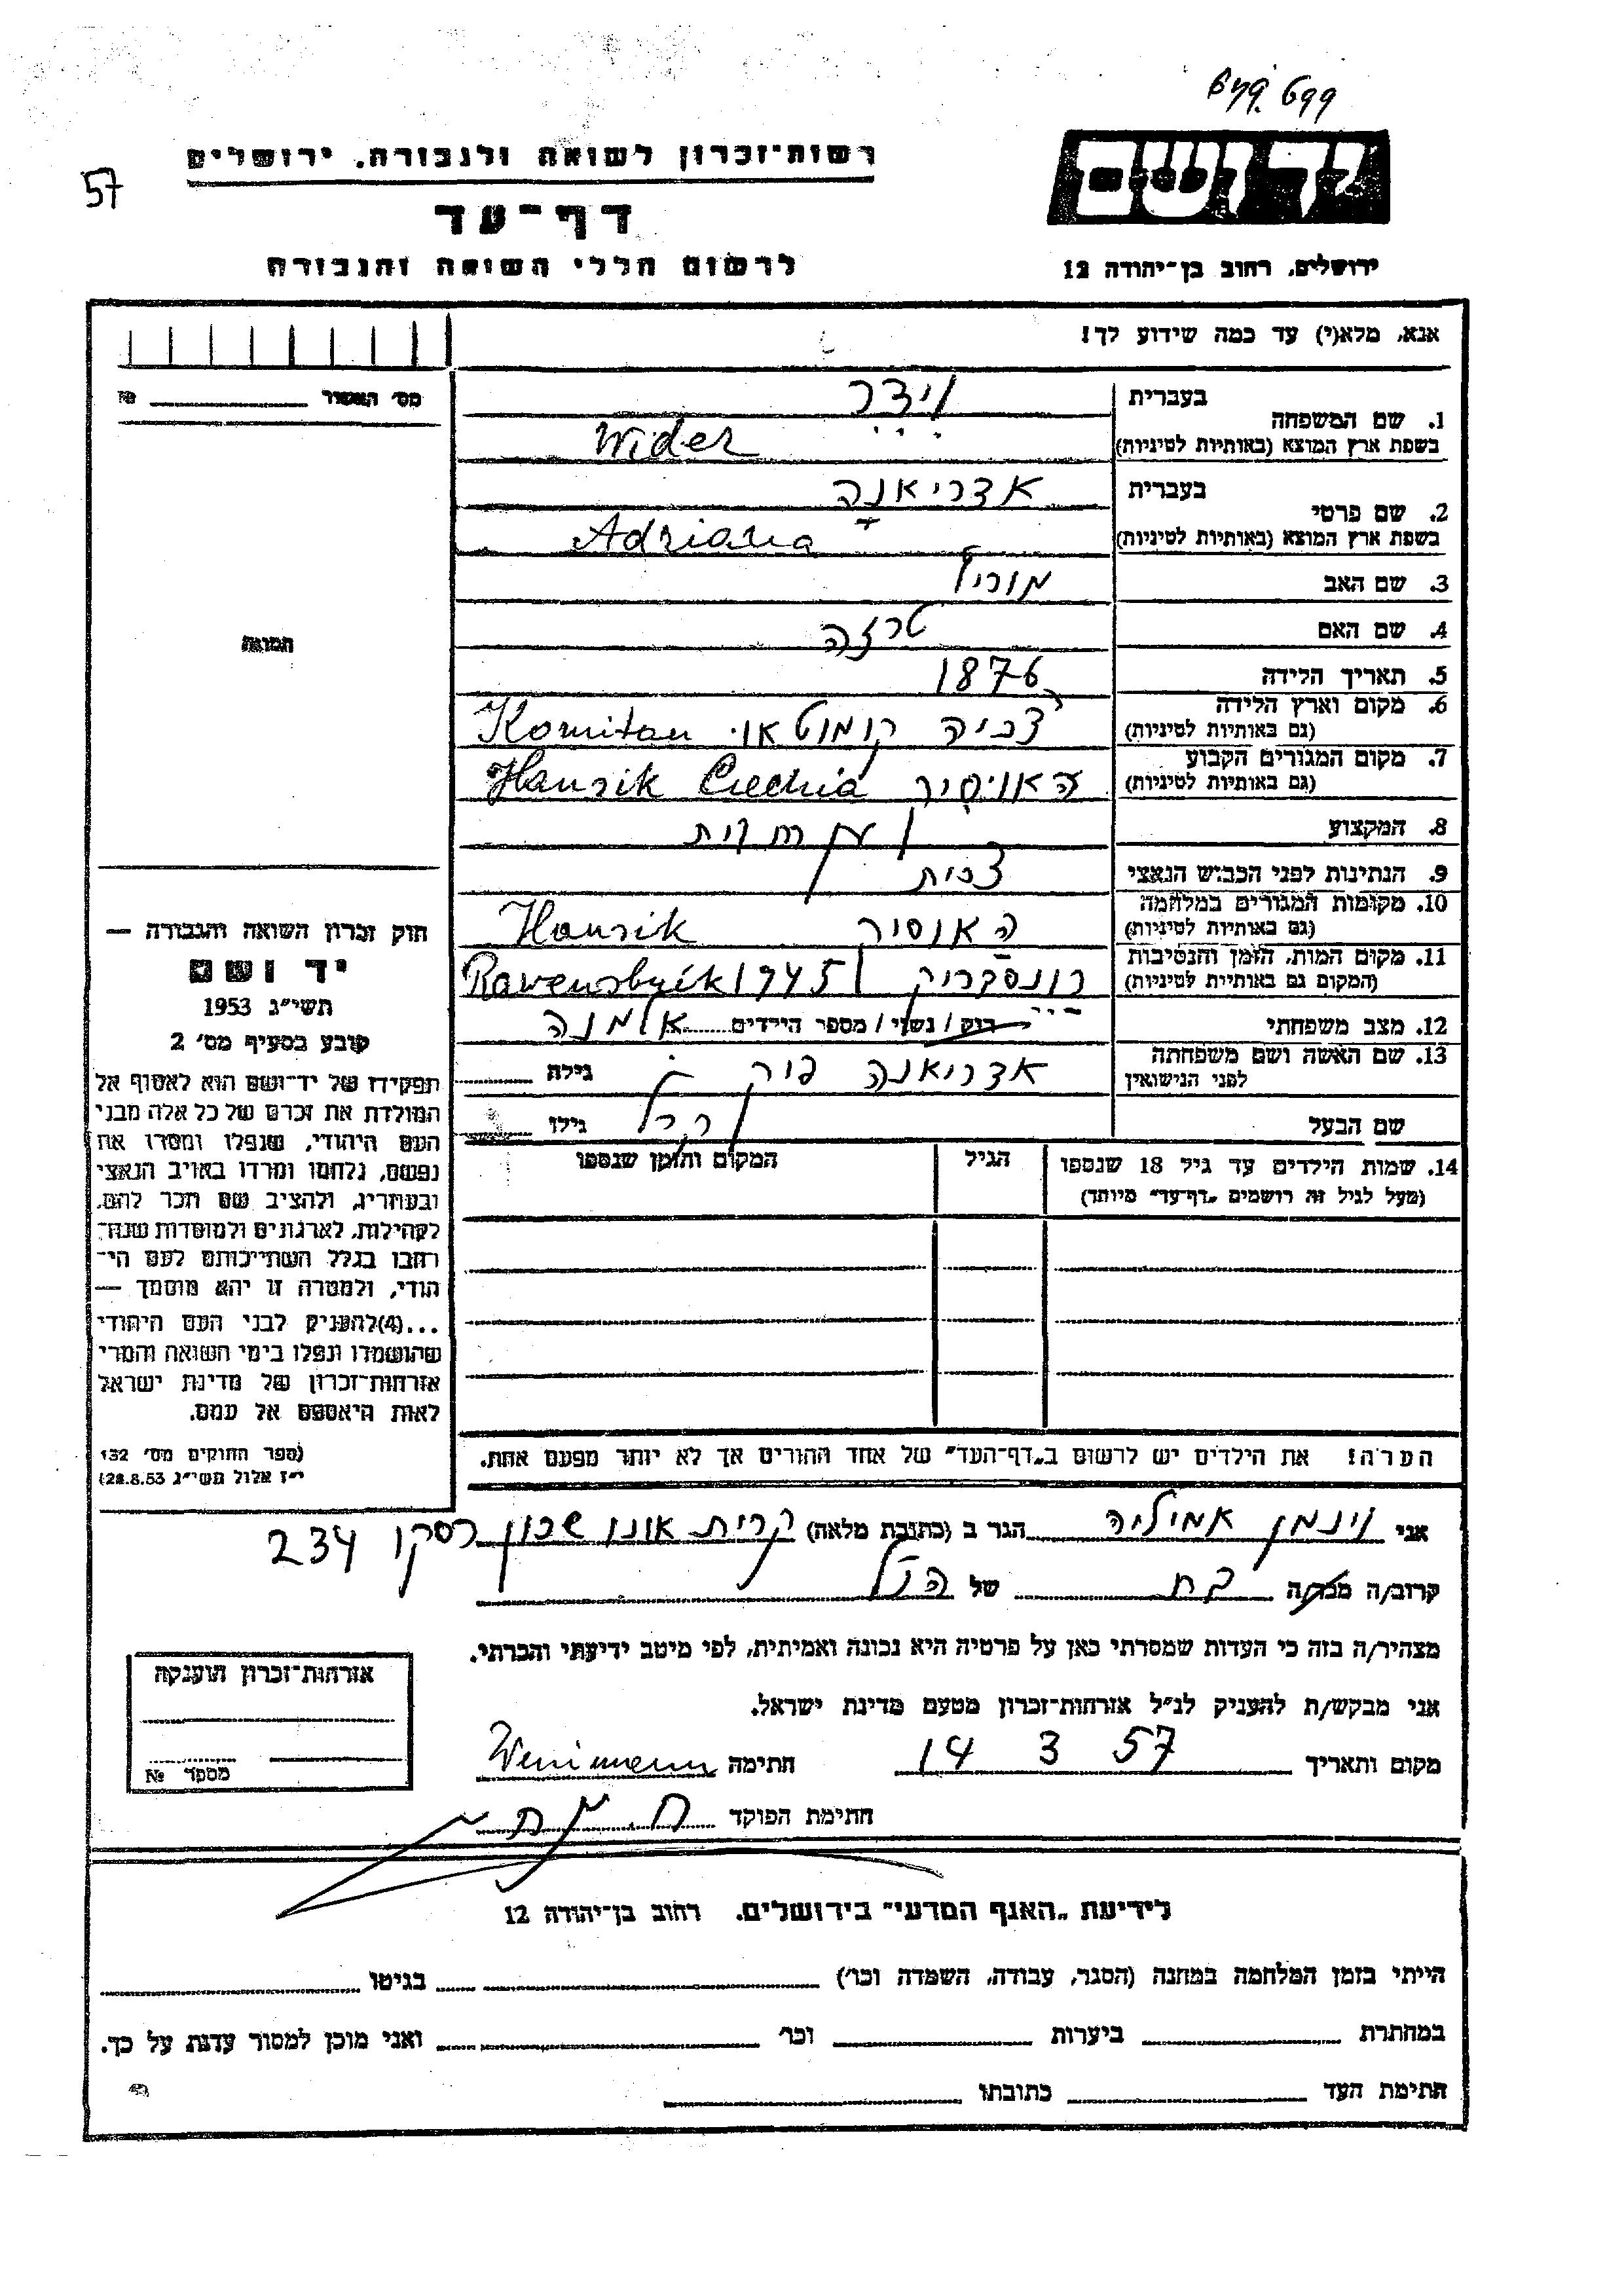 699
57
רשות־זכרון לשואה ולגבורה, ירושלים
יד ושם
דף־עד
לרשום חללי השואה והגבורה
ירושלים, רחוב בן־יהודה 12
אנא, מלא(י) עד כמה שידוע לך!
מס' האשור № 
בעברית וידר
1. שם המשפחה
בשפת ארץ המוצא (באותיות לטיניות) Wider
בעברית אדריאנה
2. שם פרטי
בשפת ארץ המוצא (באותיות לטיניות) Adriana
3. שם האב מוריץ
4. שם האם טרזה
5. תאריך הלידה 1876
6. מקום וארץ הלידה
(גם באותיות לטיניות) צ'כיה קומוטאו. Komitau
7. מקום המגורים הקבוע
(גם באותיות לטיניות) Czechia Hausik
8. המקצוע
9. הנתינות לפני הכבוש הנאצי צכית
10. מקומות המגורים במלחמה
(גם באותיות לטיניות) האוסיק Hausik
11. מקום המות, הזמן והנסיבות
(המקום גם באותיות לטיניות) רונסבריק 1945 Rawensbrück
12. מצב משפחתי רוק / נשוי / מספר הילדים אלמנה
13. שם האשה ושם משפחתה
לפני הנישואין אדריאנה פיק גילה
שם הבעל קרל גילו
14. שמות הילדים עד גיל 18 שנספו
(מעל לגיל זה רושמים „דף־עד" מיוחד)
הגיל
המקום והזמן שנספו
הערה! את הילדים יש לרשום ב„דף־העד" של אחד ההורים אך לא יותר מפעם אחת.
תמונה
חוק זכרון השואה והגבורה —
יד ושם
תשי"ג 1953
קובע בסעיף מס' 2
תפקידו של יד־ושם הוא לאסוף אל
המולדת את זכרם של כל אלה מבני
העם היהודי, שנפלו ומסרו את
נפשם, נלחמו ומרדו באויב הנאצי
ובעוזריו, ולהציב שם וזכר להם,
לקהילות, לארגונים ולמוסדות שנח־
רבו בגלל השתייכותם לעם הי־
הודי, ולמטרה זו יהא מוסמך —
...(4)להעניק לבני העם היהודי
שהושמדו ונפלו בימי השואה והמרי
אזרחות־זכרון של מדינת ישראל
לאות היאספם אל עמם.
(ספר החוקים מס' 132
י"ז אלול תשי"ג 28.8.53)
אני וינמן אמיליה הגר ב (כתובת מלאה) קרית אונו שכון רסקו 234
קרוב/ה מכר/ה בת של הנ"ל
מצהיר/ה בזה כי העדות שמסרתי כאן על פרטיה היא נכונה ואמיתית, לפי מיטב ידיעתי והכרתי.
אני מבקש/ת להעניק לנ"ל אזרחות־זכרון מטעם מדינת ישראל.
מקום ותאריך 14 3 57 חתימה Weinmann
חתימת הפוקד
אזרחות־זכרון הוענקה
מספר №
לידיעת „האגף המדעי" בירושלים, רחוב בן־יהודה 12
הייתי בזמן המלחמה במחנה (הסגר, עבודה, השמדה וכו') בגיטו
במחתרת ביערות וכו' ואני מוכן למסור עדות על כך.
חתימת העד כתובתו